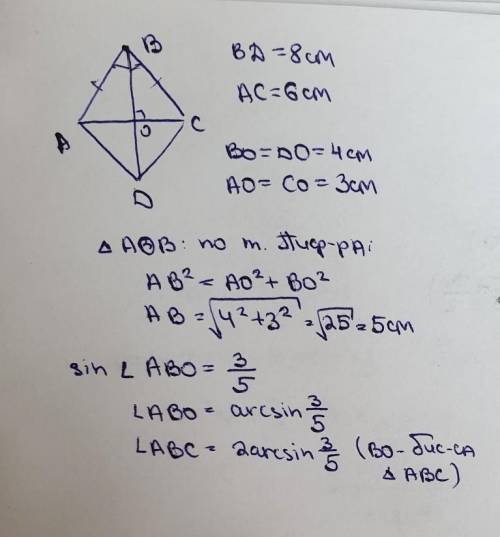 B
A
C
O
D
BD = 8 см
AC = 6 см
BO = DO = 4 см
AO = CO = 3 см
△ AOB: по т. Пиф-ра:
AB² = AO² + BO²
AB = √(4² + 3²) = √25 = 5 см
sin ∠ ABO = 3/5
∠ABO = arcsin 3/5
∠ABC = 2arcsin 3/5 (BO - бис-са
△ ABC)